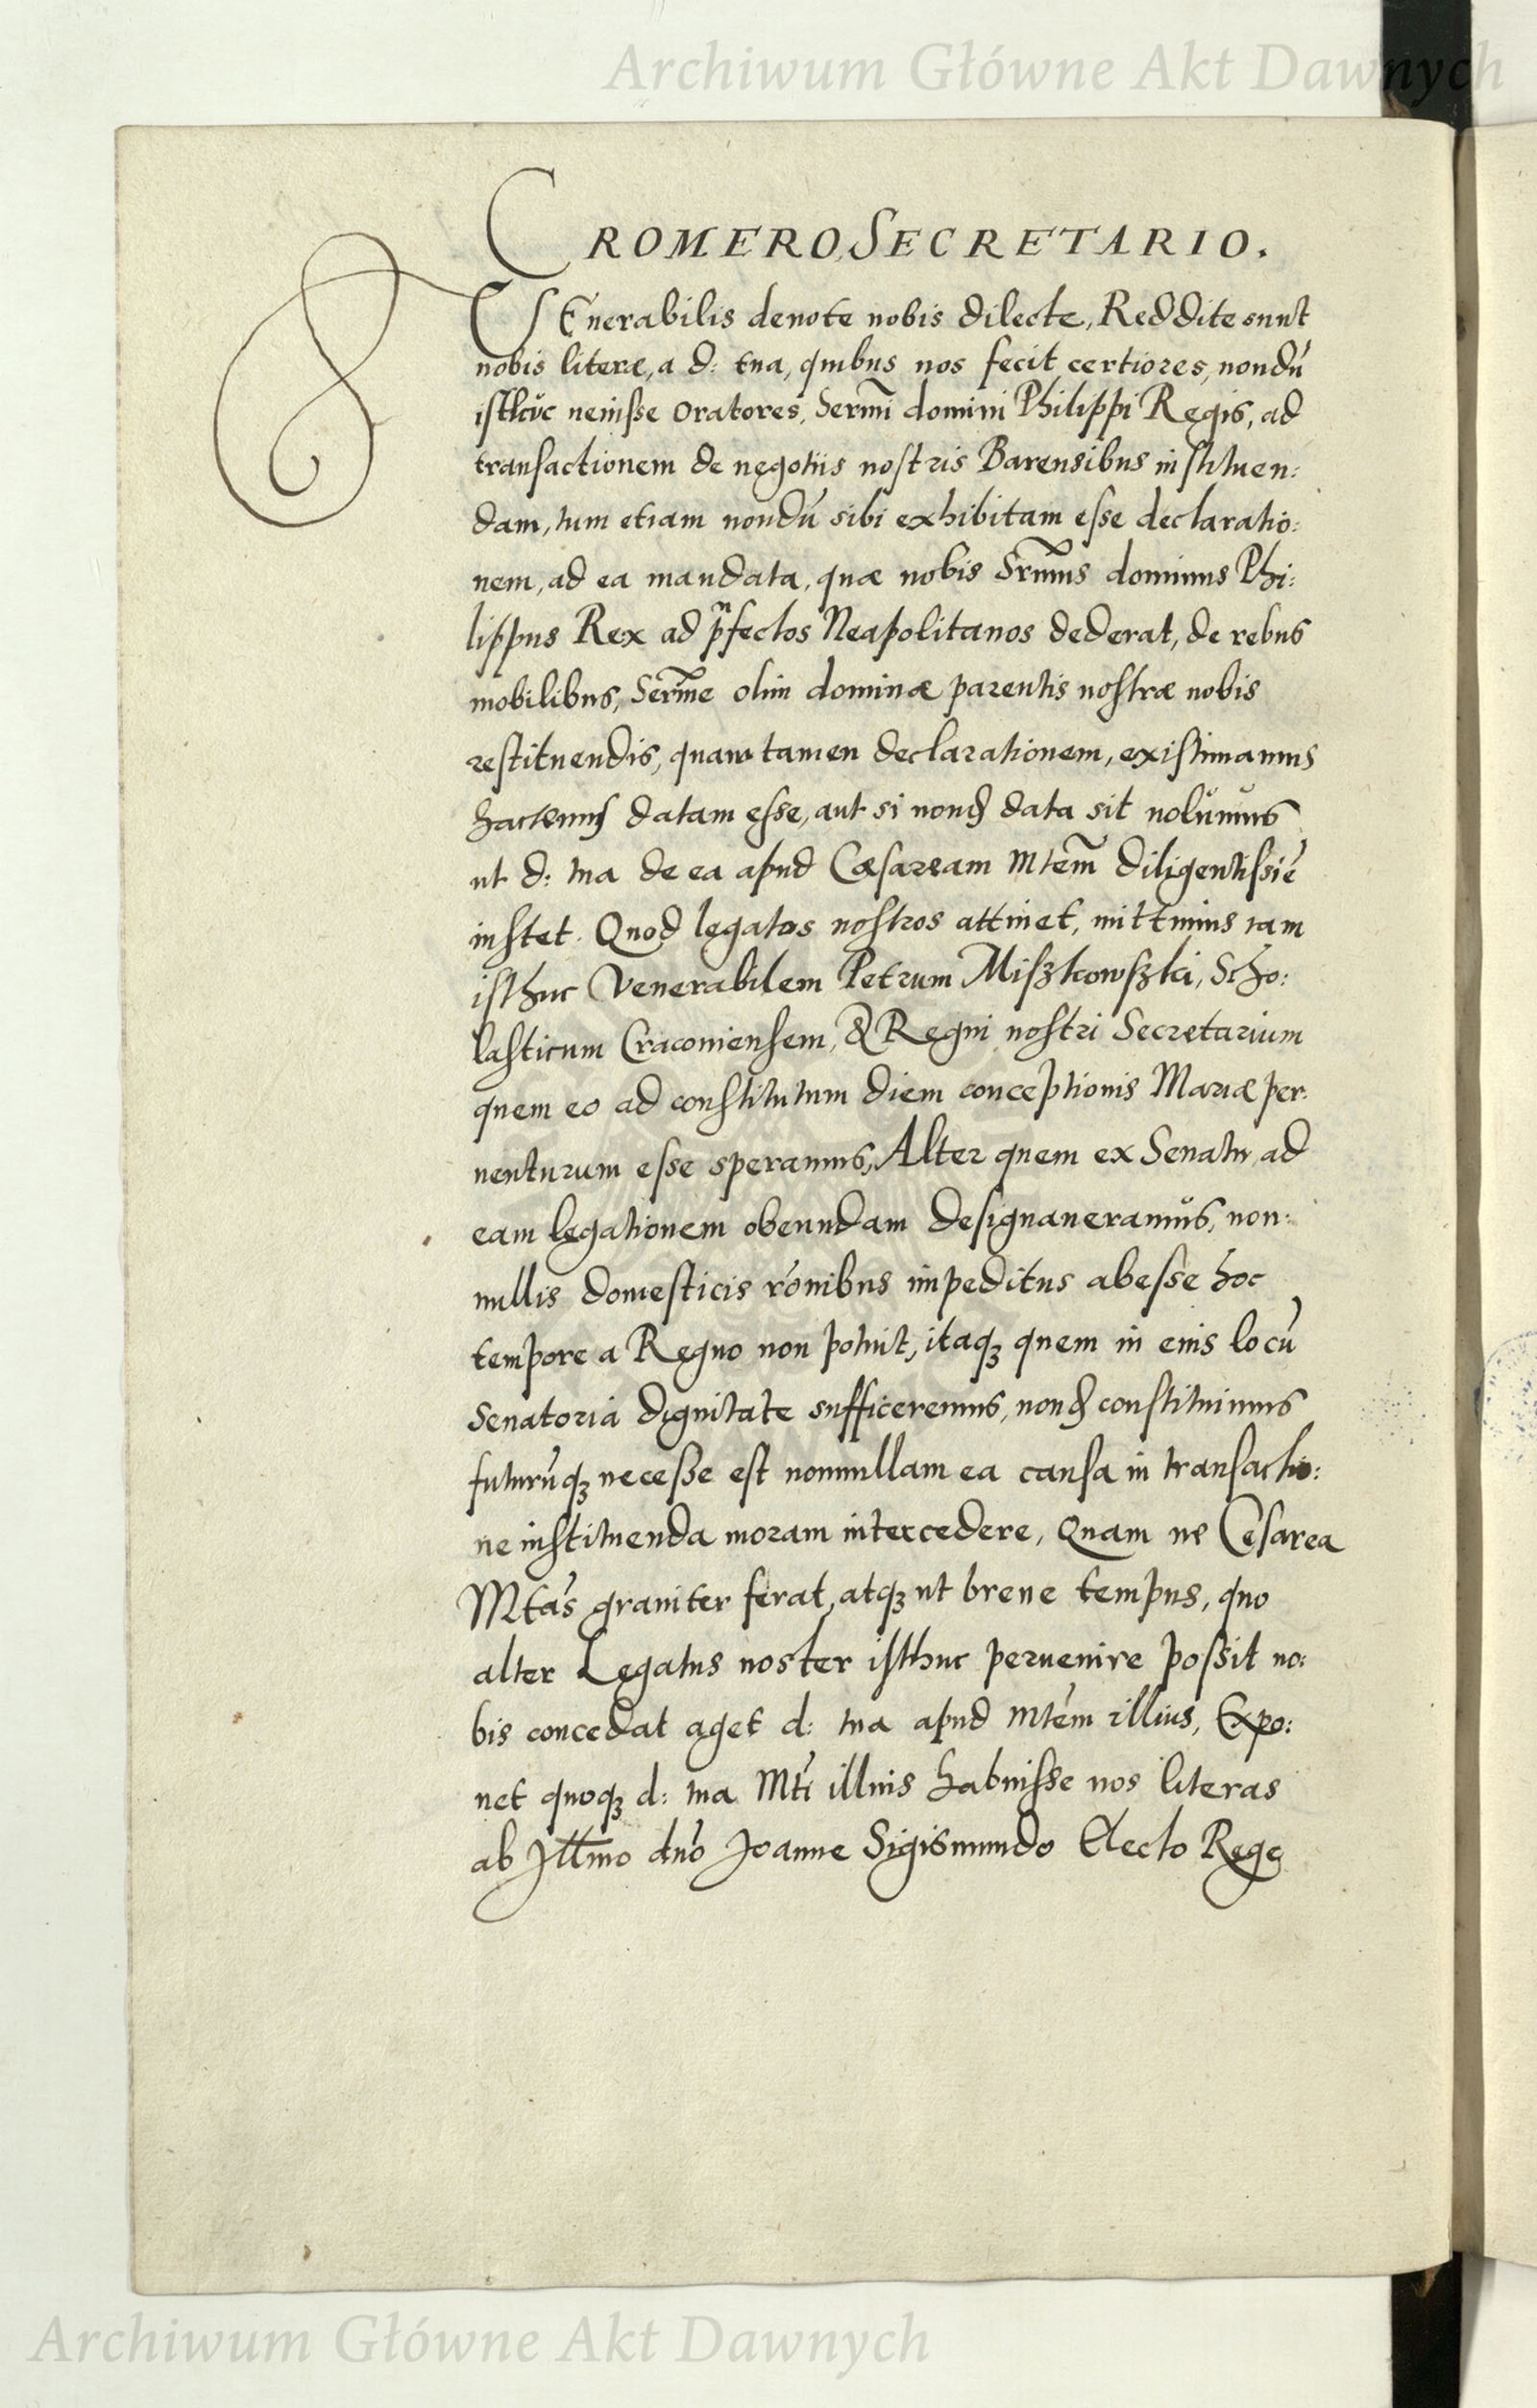 Archiwum Główne Akt Dawnych
CROMERO SECRETARIO.
VEnerabilis deuote nobis dilecte, Reddite sunt
nobis literæ, a d: tua, quibus nos fecit certiores, nondū
isthuc ueniſse Oratores, Sermi domini Philippi Regis, ad
transactionem de negotiis nostris Barensibus instituen:
dam, tum etiam nondū sibi exhibitam eſse declaratio:
nem, ad ea mandata, quæ nobis Srmus dominus Phi:
lippus Rex ad pnfectos Neapolitanos dederat, de rebus
mobilibus, Serme olim dominæ parentis nostræ nobis
restituendis, quam tamen declarationem, existimamus
hactenus datam eſse, aut si nond data sit nolumus
ut d: tua de ea apud Cæsaream Mtem diligentiſsie
instet. Quod legatos nostros attinet, mittimus iam
isthuc Venerabilem Petrum Miſzkowſzki, Scho:
lasticum Cracouiensem, & Regni nostri Secretarium
quem eo ad constitutum diem conceptionis Mariæ per
uenturum eſse speramus, Alter quem ex Senatu ad
eam legationem obeundam designaueramus, non:
nullis domesticis rōnibus impeditus abeſse hoc
tempore a Regno non potuit, itaqʒ quem in eius locū
Senatoria dignitate sufficeremus, nond constituimus
futurūqʒ neceſse est nonnullam ea causa in transactio:
ne instituenda moram intercedere, Quam ne Cesarea
Mtas grauiter ferat, atqʒ ut breue tempus, quo
alter Legatus noster isthuc peruenire poſsit no:
bis concedat aget d: tua apud Mtem illius, Expo:
net quoqʒ d: tua Mti illius habuiſse nos literas
ab Illmo dno Joanne Sigismundo Electo Rege
Archiwum Główne Akt Dawnych